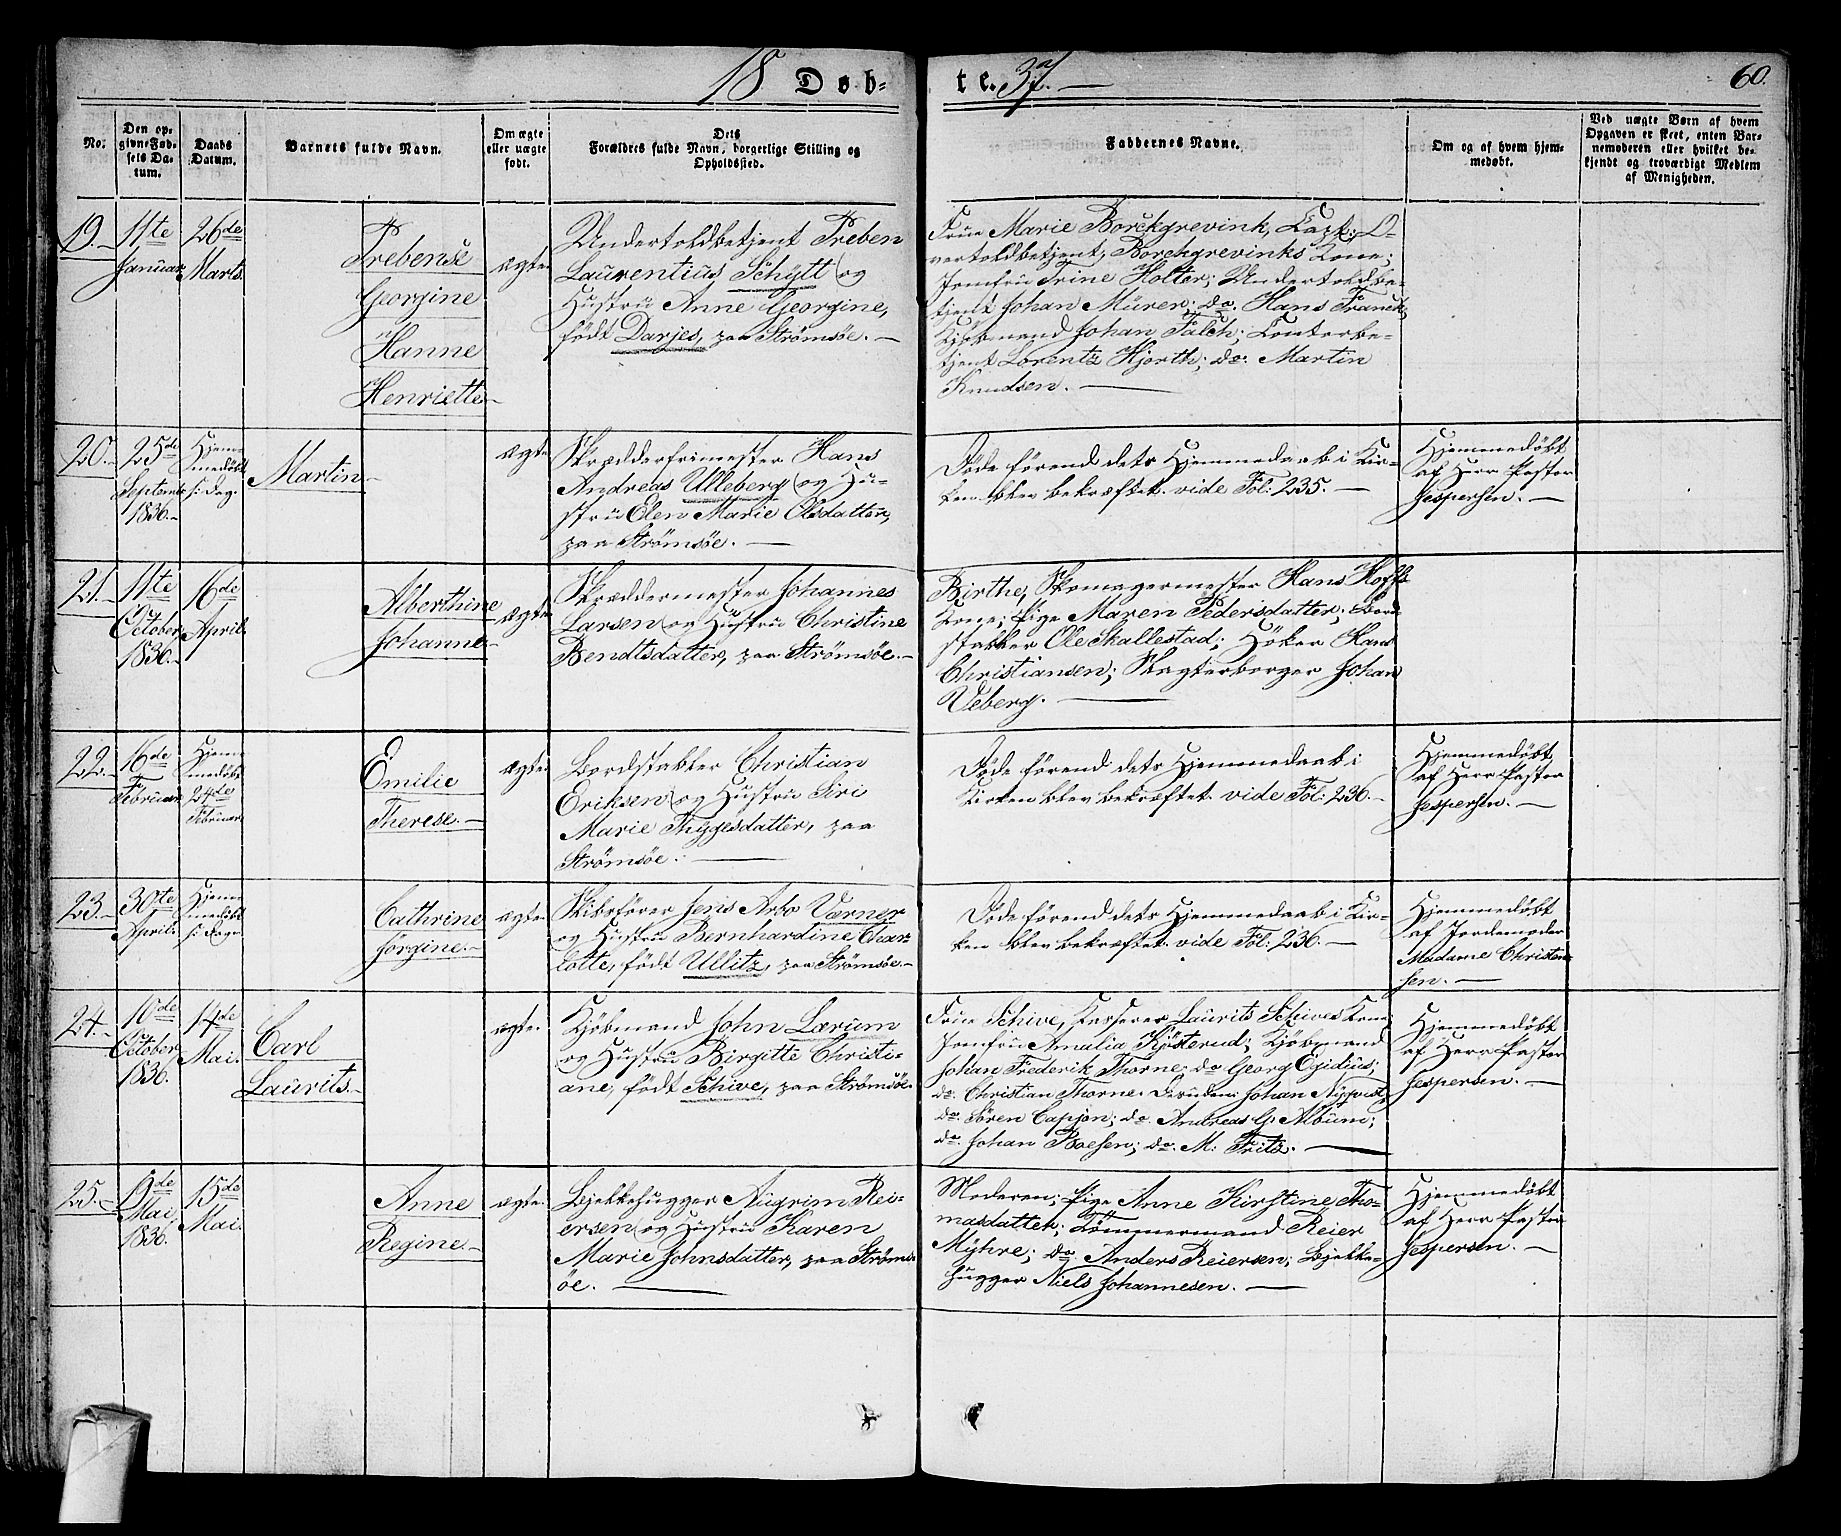 18 Døb-
te. 37. —
60.
No.
Den op-
givne Fød-
sels Da-
tum.
Daabs
Datum.
Barnets fulde Navn.
Om ægte
eller uægte
født.
Dets
Forældres fulde Navn, borgerlige Stilling og
Opholdssted.
Faddernes Navne.
Om og af hvem hjem-
medøbt.
Ved uægte Børn af hvem
Opgaven er skeet, enten Bar-
nemoderen eller hvilket be-
kjendt og troværdigt Medlem
af Menigheden.
19.
11te
Januar.
26de
Marts.
Prebense
Georgine
Hanne
Henriette
ægte
Undertoldbetjent Preben
Laurentius Schytt og
Hustru Anne Georgine,
født Darjes, paa Strömsöe. —
Frue Marie Borchgrevink, O-
vertoldbetjent, Borchgrevinks Kone;
Jomfru Trine Holter; Undertoldbe-
tjent Johan Mürer; do. Hans Franck
Kjöbmand Johan Falch; Contorbe-
tjent Lorentz Hjorth; do. Martin
Knudsen. —
20.
25de
Septembr
1836.
Hjem-
medöbt
s: Dag.
Martin
ægte
Skrædderfrimester Hans
Andreas Ulleberg og Hu-
stru Elen Marie Olsdatter,
paa Strömsöe. —
Döde förend dets Hjemmedaab i Kir-
ken blev bekræftet. vide Fol: 235. —
Hjemmedöbt
af Herr Pastor
Jespersen. —
21.
11te
October
1836.
16de
April.
Alberthine
Johanne
ægte
Skræddermester Johannes
Larsen og Hustru Christine
Bendtsdatter, paa Strömsöe. —
Birthe, Skomagermester Hans Hoffs
Kone; Pige Maren Pedersdatter; Bord-
stabler Ole Skallestad; Höker Hans
Christiansen; Slagterborger Johan
Ueberg. —
22.
16de
Februar
Hjem-
medöbt
24de
Februar
Emilie
Therese.
ægte.
Bordstabler Christian
Eriksen og Hustru Siri
Marie Thygesdatter, paa
Strömsöe. —
Döde förend dets Hjemmedaab i
Kirken blev bekræftet. vide Fol: 236. —
Hjemmedöbt
af Herr Pastor
Jespersen. —
23.
30te
April.
Hjem-
medöbt
s: Dag.
Cathrine
Jörgine.
ægte.
Skibsförer Jens Arbo Værner
og Hustru Bernhardine Char-
lotte, födt Ullitz, paa Strömsöe. —
Döde förend dets Hjemmedaab i Kir-
ken blev bekræftet. vide Fol: 236. —
Hjemmedöbt
af Jordemoder
Madame Christen-
sen. —
24.
10de
October
1836.
14de
Mai.
Carl
Laurits.
ægte.
Kjöbmand John Lærum
og Hustru Birgitte Christi-
ane, födt Schive, paa Strömsöe.
Frue Schive, Kasserer Laurits Schives Kone;
Jomfru Amalia Kjösterud; Kjöbmand
Johan Frederik Thorne; do Georg Egidius;
do. Christian Thorne. Johan Nyqvist
do. Sören Cappon; do. Andreas G. Album;
do. Johan Boesen; do. M: Fritz. —
Hjemmedöbt
af Herr Pastor
Jespersen. —
25.
Mai,
1836.
15de
Mai.
Anne
Regine
ægte.
Bjelkehugger Augrim Rei-
ersen og Hustru Karen
Marie Johnsdatter, paa Ströms-
öe. —
Moderen; Pige Anne Kirstine Tho-
masdatter; Tömmermand Reier
Myhre; do. Anders Reiersen; Bjelke-
hugger Niels Johannesen. —
Hjemmedöbt
af Herr Pastor
Jespersen. —